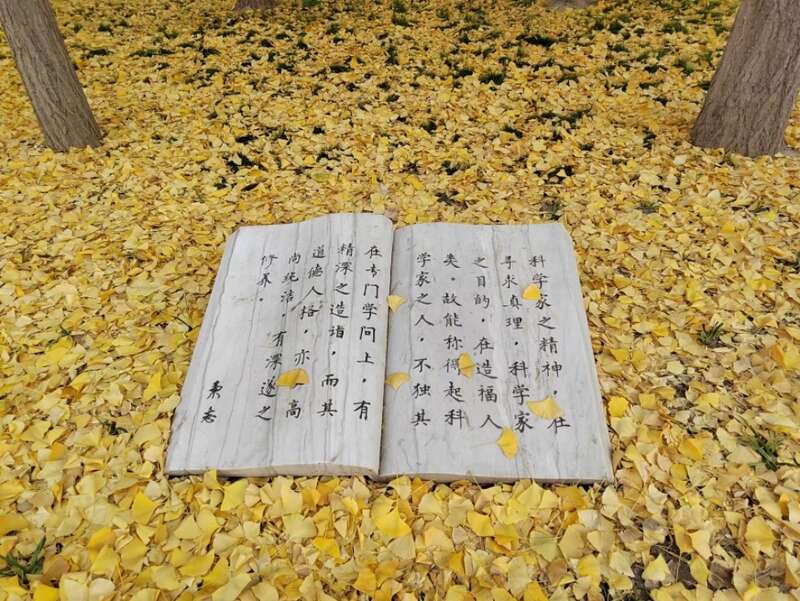 科学家之精神，在
寻求真理，科学家
之目的，在造福人
类。故能称得起科
学家之人，不独其
在专门学问上，有
精深之造诣，而其
道德人格，亦高
尚纯洁，有深邃之
修养。
秉志